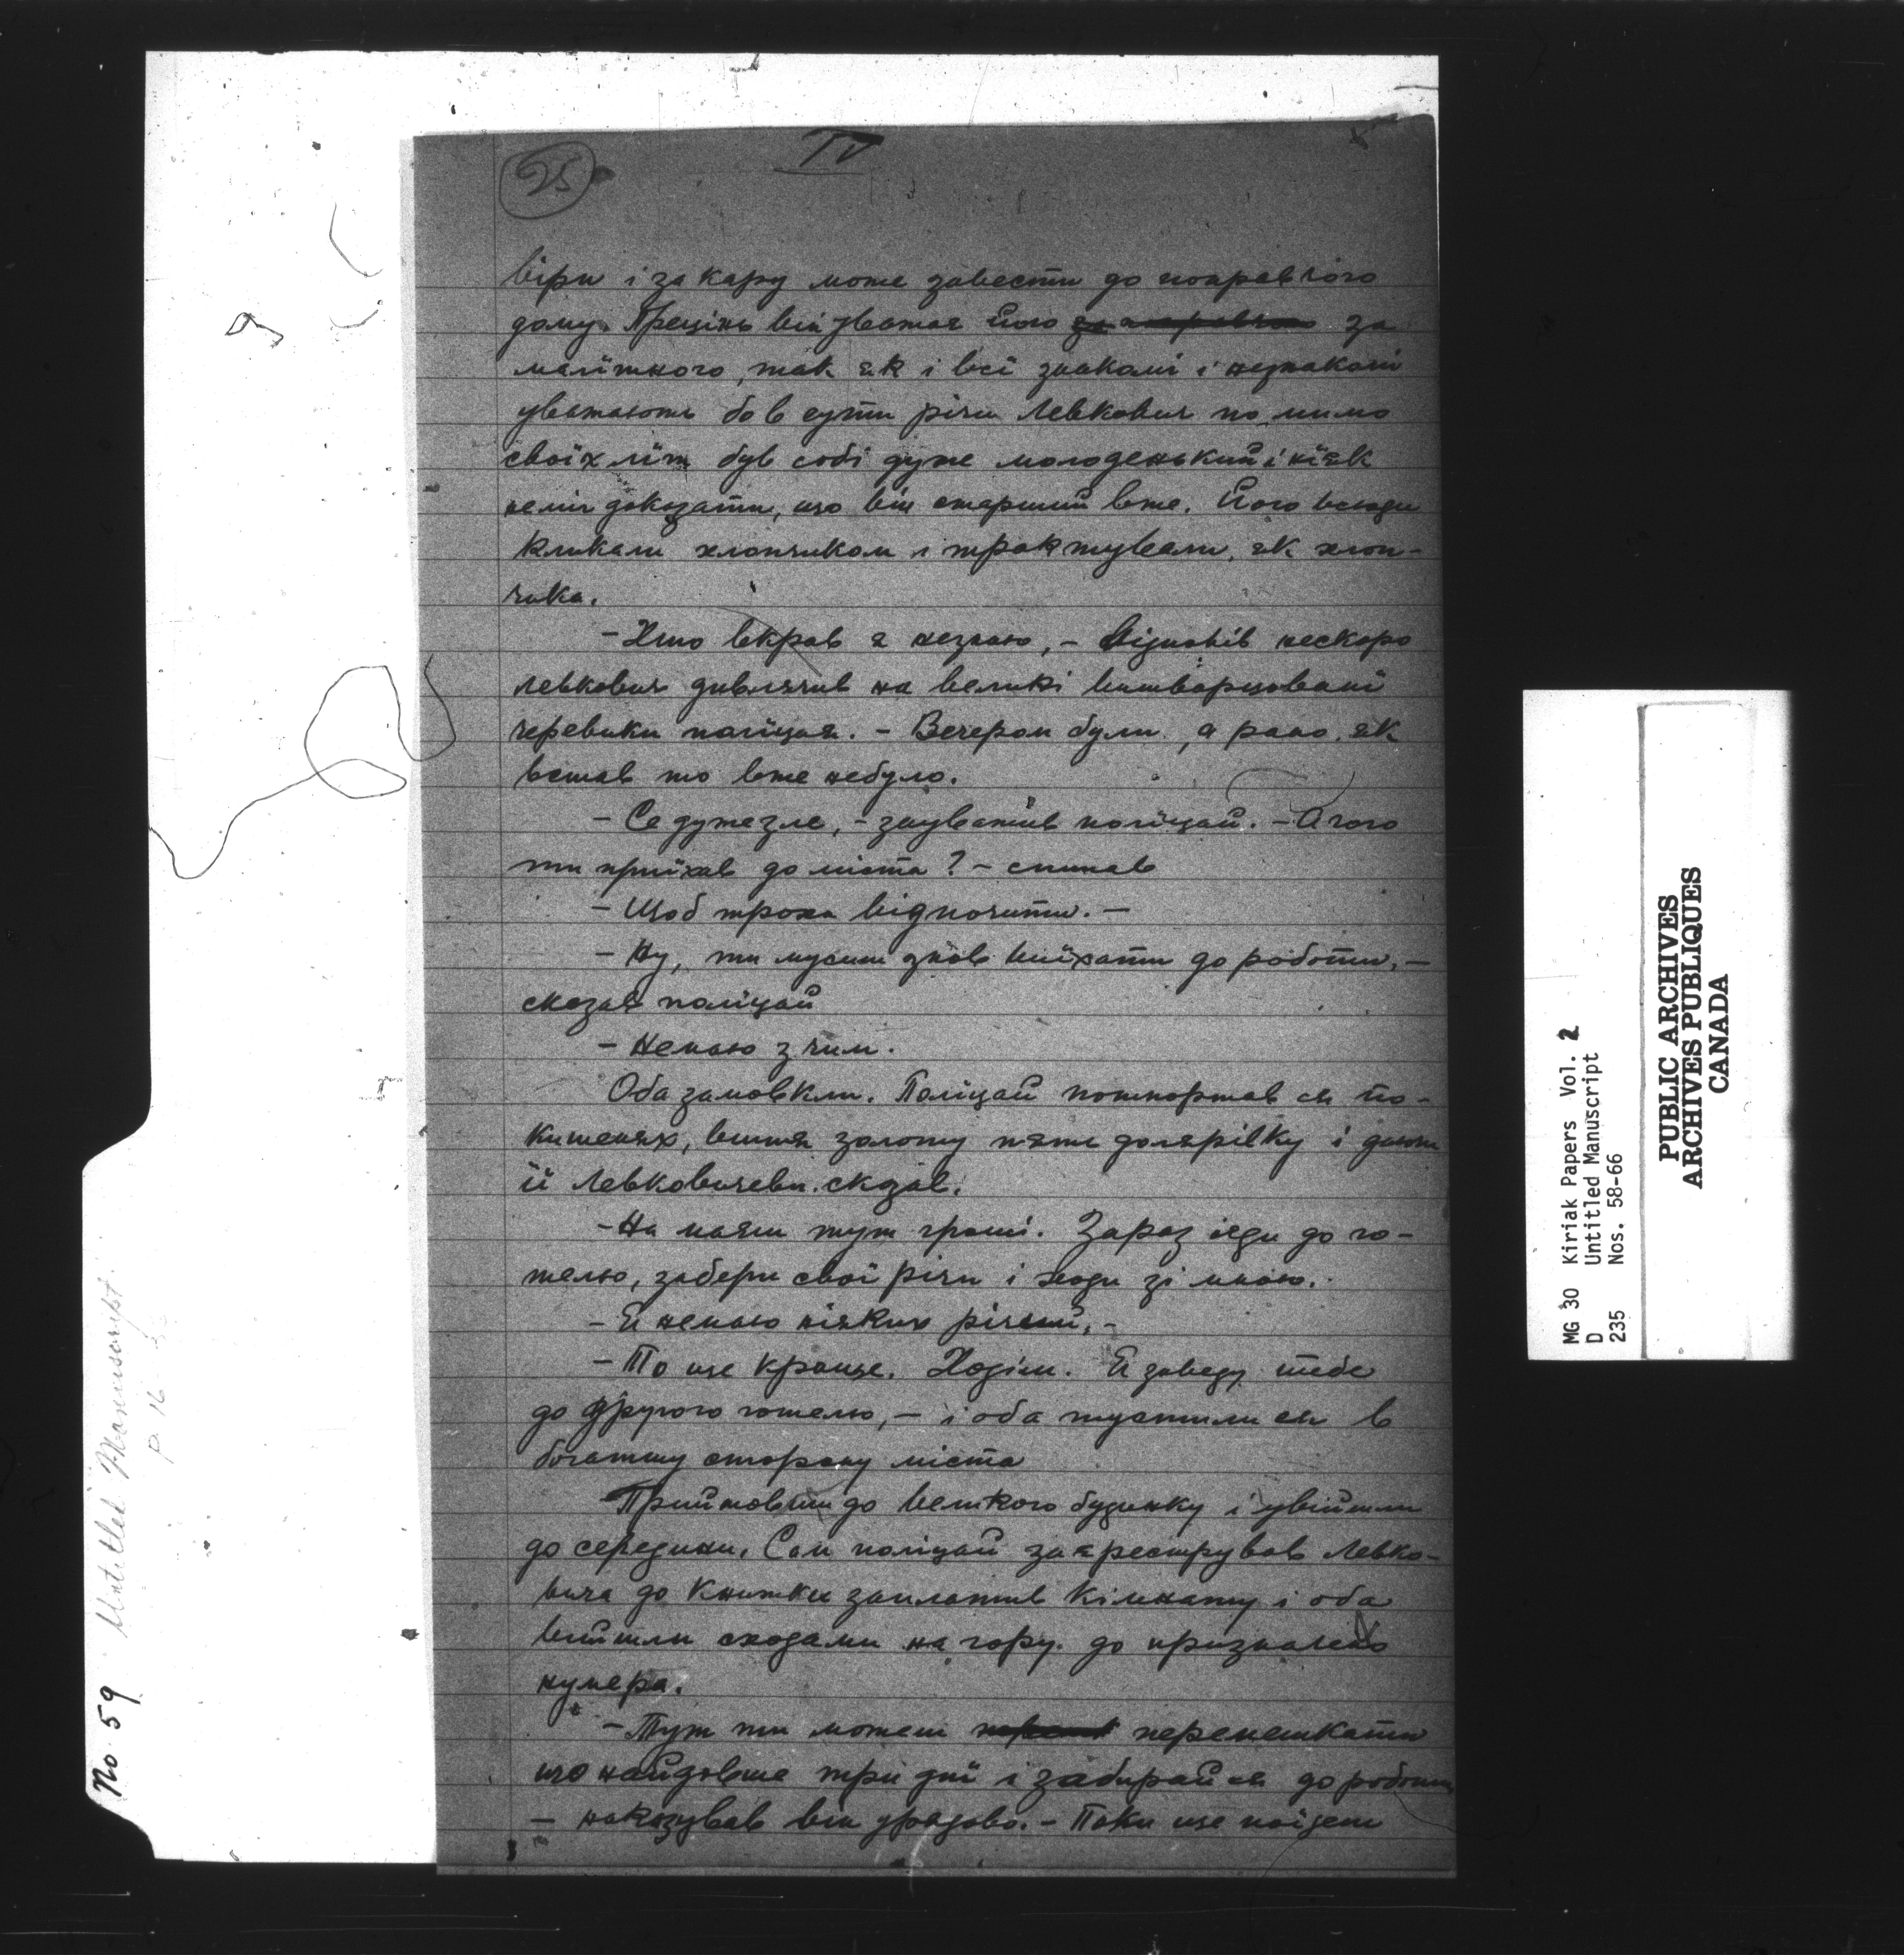 IV
25
віри і за кару може завести до поправчого
дому. Прецінь він уважає його за
малїтнього, так як і всї знакомі і незнакомі
уважають бо в сути річи Левкович помимо
своїх лїт був собі дуже молоденький і нїяк
неміг доказати, що він старший вже. Його всюди
кликали хлопчиком і трактували, як хлоп-
чика.
- Хто вкрав я незнаю, - відповів нескоро
Левкович дивлячив на великі вишварцовані
черевики полїцая. - Вечером були, а рано, як
встав то вже небуло.
- Се дуже зле, - зауважив полїцай. - А чого
ти приїхав до міста? - спитав
- Щоб троха відпочити. -
- Ну, ти мусиш знов виїхати до роботи, -
сказав полїцай
- Немаю з чим.
Оба замовкли. Полїцай поштортав ся по
кишенях, виняв золоту пять долярівку і
її Левковичеви сказав.
- На маєш тут гроші. Зараз іди до го-
телю, забери свої річи і ходи зі мною.
- Я немаю нїяких річий, -
- То ще краще. Ходїм. Я заведу тебе
до другого готелю, - і оба пустили ся в
богатшу сторону міста
Прийшовши до великого будинку і увійшли
до середини. Сам полїцай заярестрував Левко-
вича до книжки заплатив кімнату і оба
вийшли сходами на гору до призначено
нумера.
- Тут ти можеш перемешкати
що найдовше три днї і забирай ся до роботи
- наказував він урядово. - Поки ще пійдеш
No. 59 Untitled Manuscript
p. 16
MG 30 Kiriak Papers Vol. 2
D Untitled Manuscript
235 Nos. 58-66
PUBLIC ARCHIVES
ARCHIVES PUBLIQUES
CANADA